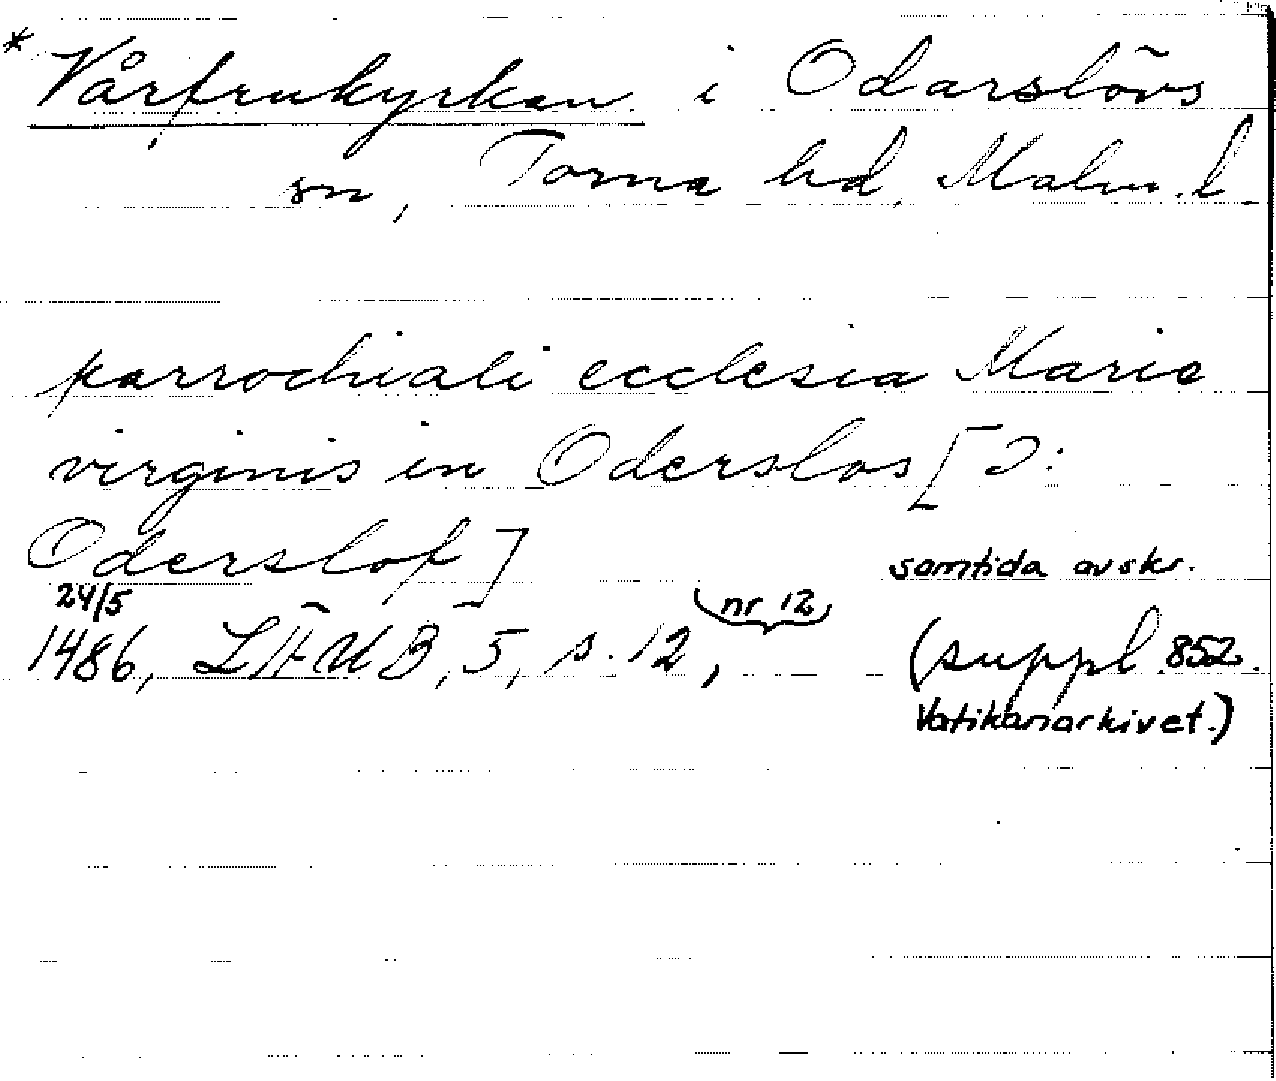 * Vårfrukyrkan i Odarslövs
sn, Torna hd, Malm. l.
parrochiali ecclesia Marie
virginis in Oderslos [ɔ:
Oderslof]
samtida avskr.
24/5
1486, LÄUB, 5, s. 12, nr 12
(suppl. 852.
Vatikanarkivet.)